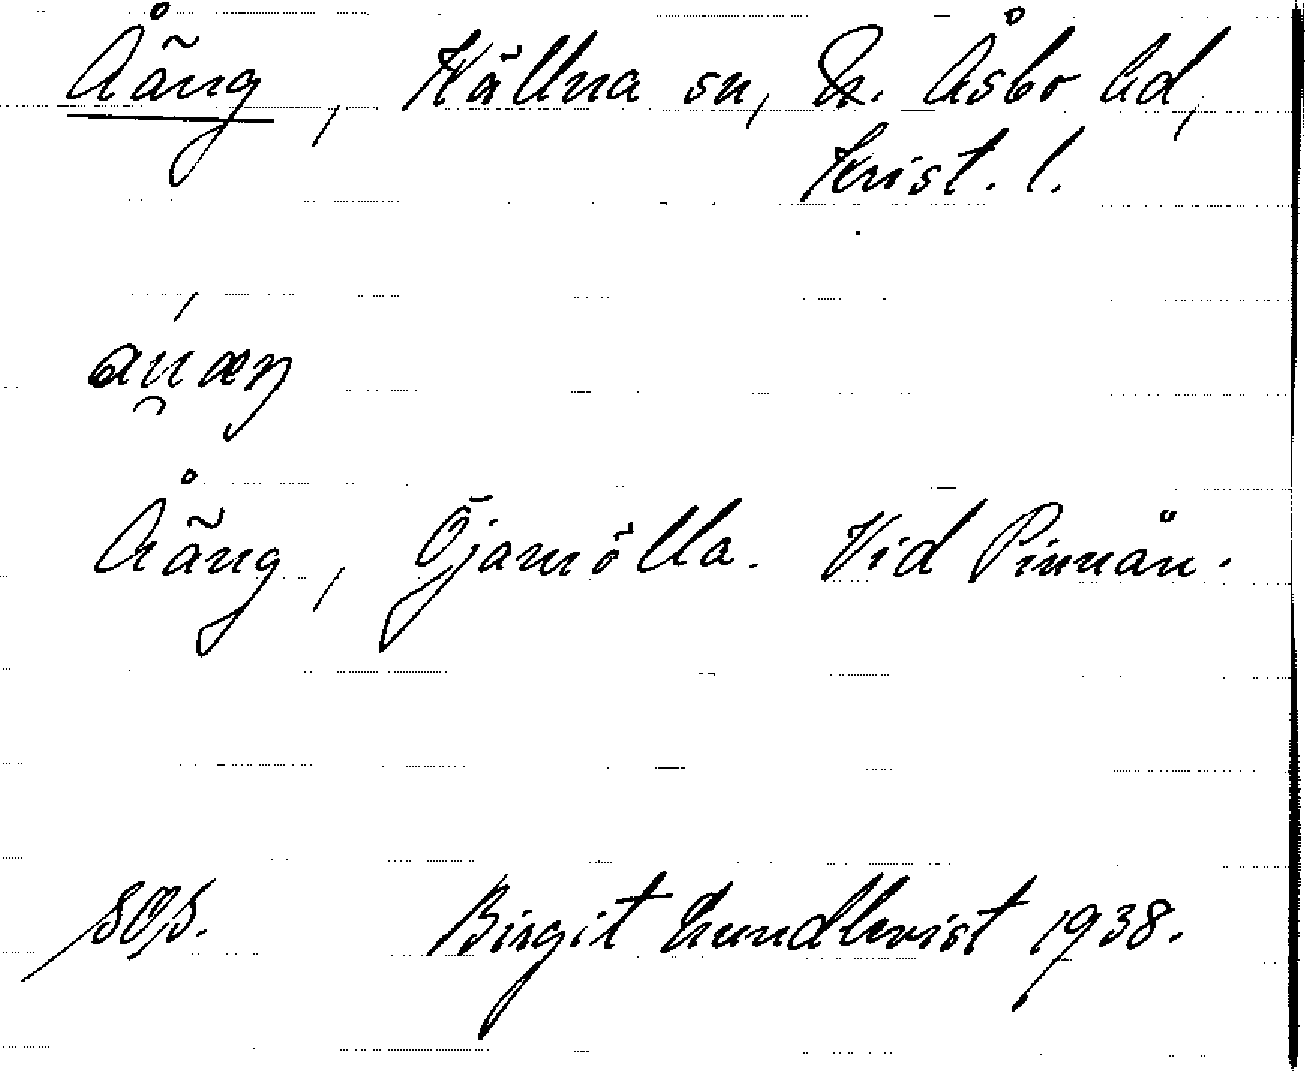 Åäng, Källna sn, N. Åsbo hd,
Krist. l.
Åäng, Öjamölla. Vid Pinnån.
Birgit Lundkvist 1938.